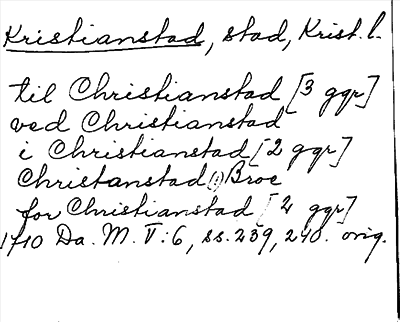 Kristianstad, stad, Krist. l.
til Christianstad [3 ggr]
ved Christianstad
i Christianstad [2 ggr]
Christanstad (!) Broe
for Christianstad [2 ggr]
1710 Da. M. V:6, ss. 239, 240. orig.